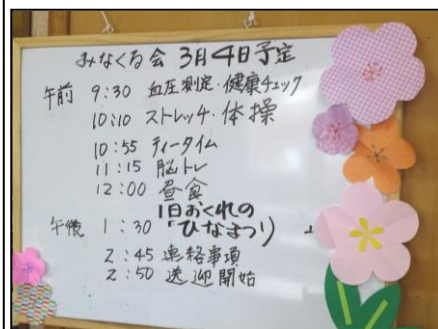 みなくる会 3月4日予定
午前 9:30 血圧測定・健康チェック
10:10 ストレッチ・体操
10:55 ティータイム
11:15 脳トレ
12:00 昼食
午後 1:30 1日おくれの「ひなまつり」
2:45 連絡事項
2:50 送迎開始